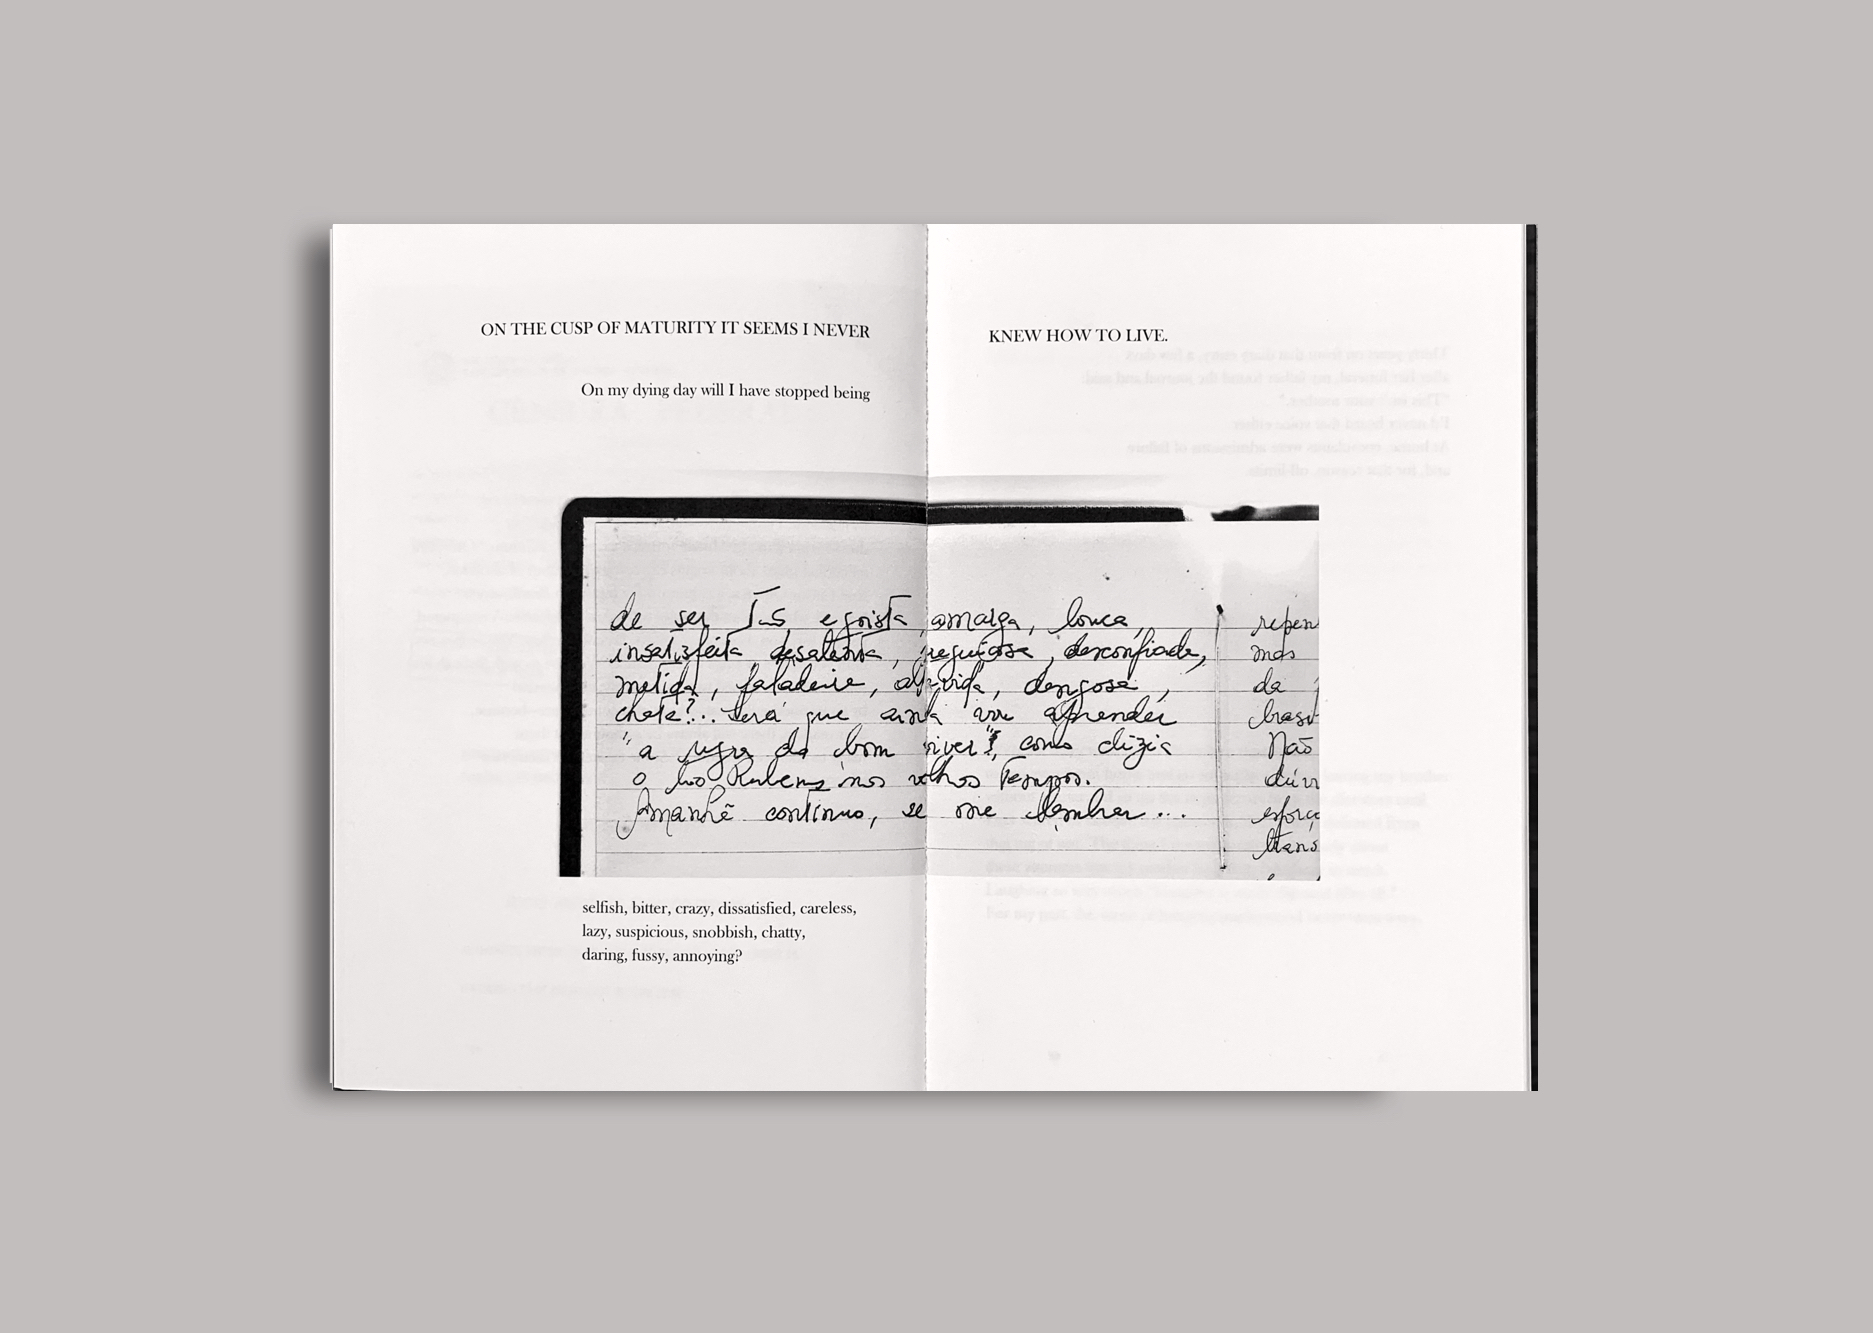 ON THE CUSP OF MATURITY IT SEEMS I NEVER
KNEW HOW TO LIVE.
On my dying day will I have stopped being
de ser tão egoísta, amarga, louca,
insatisfeita, desatenta, preguiçosa, desconfiada,
metida, faladeira, atrevida, dengosa,
chata?... Será que ainda vou aprender
"a regra do bom viver", como dizia
o tio Rubens nos velhos tempos.
Amanhã continuo, se me lembrar...
repen
mas
da
brasi
Não
dúvi
esforç
trans
selfish, bitter, crazy, dissatisfied, careless,
lazy, suspicious, snobbish, chatty,
daring, fussy, annoying?